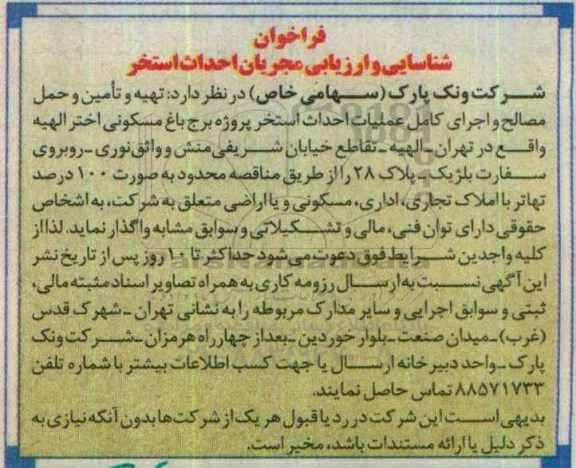 فراخوان
شناسایی و ارزیابی مجریان احداث استخر
شرکت ونک پارک (سهامی خاص) در نظر دارد: تهیه و تأمین و حمل
مصالح و اجرای کامل عملیات احداث استخر پروژه برج باغ مسکونی اختر الهیه
واقع در تهران ـ الهیه ـ تقاطع خیابان شریفی‌منش و واثق‌نوری ـ روبروی
سفارت بلژیک ـ پلاک ۲۸ را از طریق مناقصه محدود به صورت ۱۰۰ درصد
تهاتر با املاک تجاری، اداری، مسکونی و یا اراضی متعلق به شرکت، به اشخاص
حقوقی دارای توان فنی، مالی و تشکیلاتی و سوابق مشابه واگذار نماید. لذا از
کلیه واجدین شرایط فوق دعوت می‌شود حداکثر تا ۱۰ روز پس از تاریخ نشر
این آگهی نسبت به ارسال رزومه کاری به همراه تصاویر اسناد مثبته مالی،
ثبتی و سوابق اجرایی و سایر مدارک مربوطه را به نشانی تهران ـ شهرک قدس
(غرب) ـ میدان صنعت ـ بلوار خوردین ـ بعد از چهارراه هرمزان ـ شرکت ونک
پارک ـ واحد دبیرخانه ارسال یا جهت کسب اطلاعات بیشتر با شماره تلفن
۸۸۵۷۱۷۳۳ تماس حاصل نمایند.
بدیهی است این شرکت در رد یا قبول هر یک از شرکت‌ها بدون آنکه نیازی به
ذکر دلیل یا ارائه مستندات باشد، مخیر است.